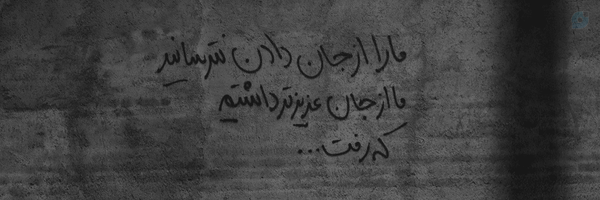 ما را از جان دادن نترسانید
ما از جان عزیزتر داشتیم
که رفت...